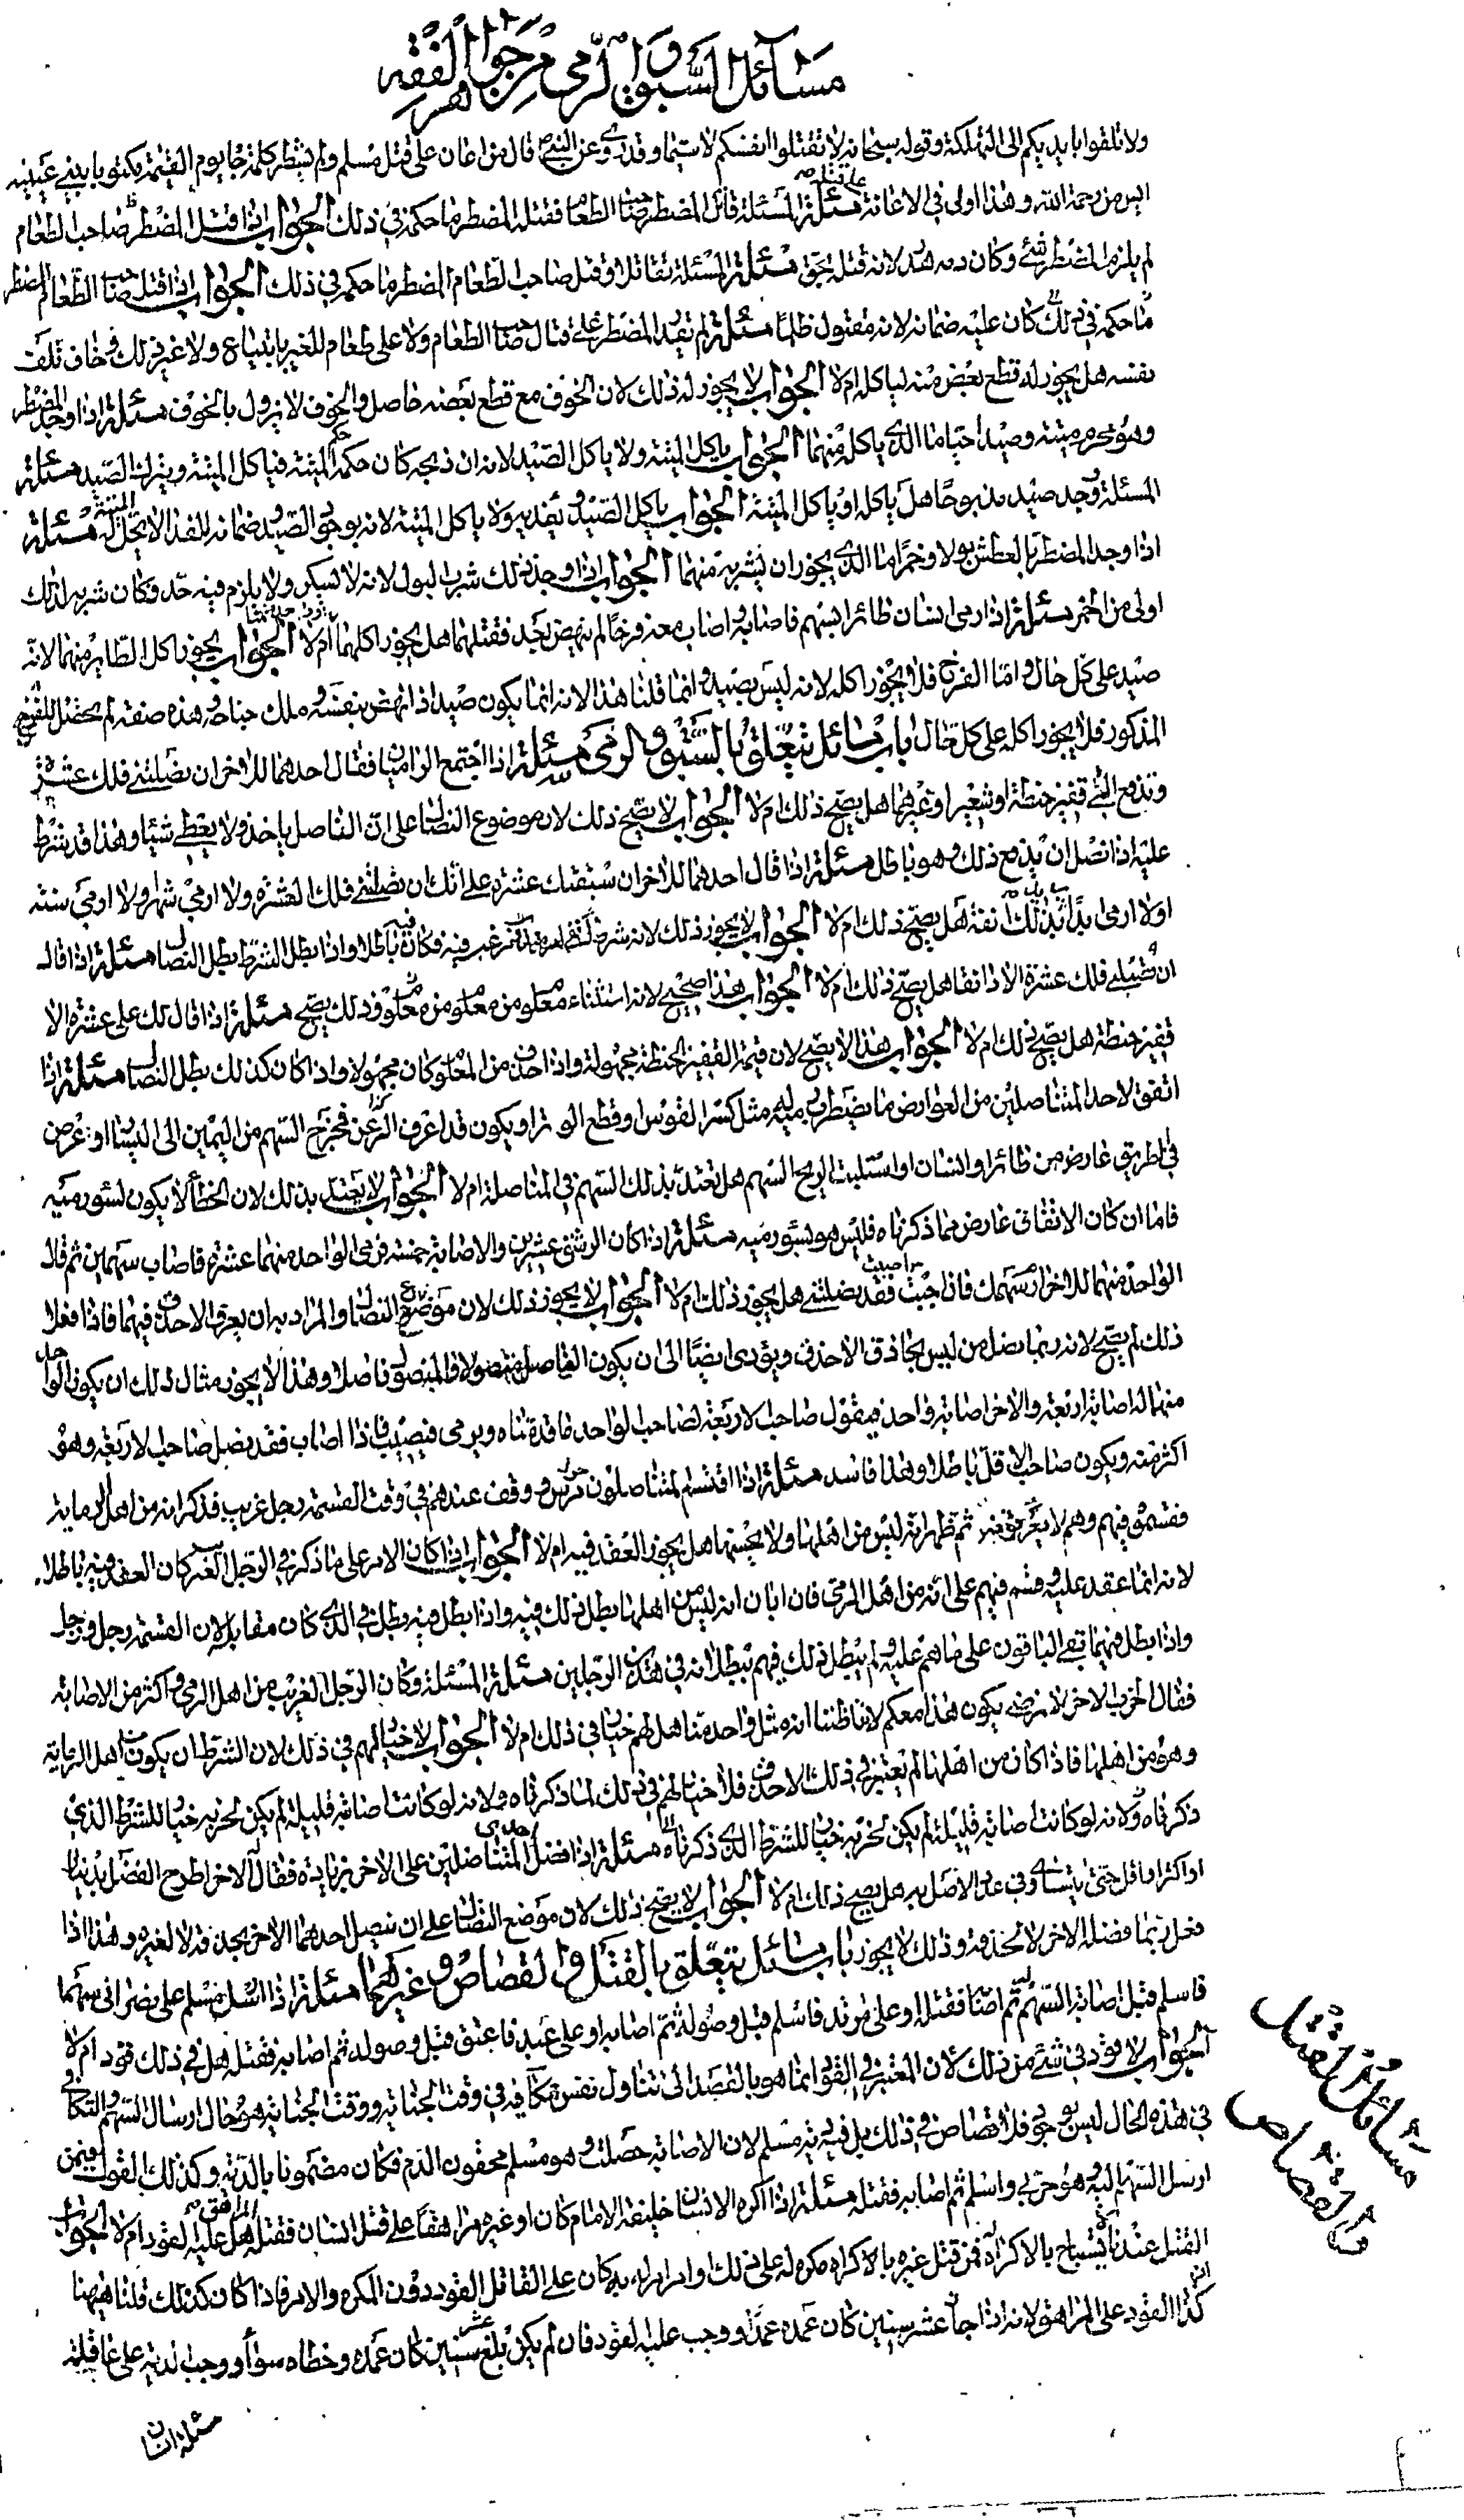 مسائل السبق والرمى من جواهر الفقه
ولا تلقوا بايديكم الى التهلكة وقوله سبحانه لا تقتلوا انفسكم لا سيما وقد روى عن النبى ص قال من اعان على قتل مسلم ولم بشطر كلمة جاء يوم القيمة مكتوبا بين عينيه
ايس من رحمة الله وهذا اولى فى الاعانة على قتله مسئلة المسئلة قاتل المضطر صاحب الطعام فقتله المضطر ما حكمه فى ذلك الجواب اذا قتل المضطر صاحب الطعام
لم يلزم المضطر شئ وكان دمه هدر لانه قتله بحق مسئلة المسئلة تقاتلا وقتل صاحب الطعام المضطر ما حكمه فى ذلك الجواب اذا قتل صاحب الطعام المضطر
ما حكمه فى ذلك كان عليه ضمانه لانه مقتول ظلما مسئلة لم يقدر المضطر على قتال صاحب الطعام ولا على طعام للغير بابتياع ولا غير ذلك وخاف تلف
نفسه هل يجوز له قطع بعض منه لياكله ام لا الجواب لا يجوز له ذلك لان الخوف مع قطع بعضه حاصل والخوف لا يزول بالخوف مسئلة اذا وجد المضطر
وهو محرم ميتة وصيدا حيا ما الذى ياكل منهما الجواب ياكل الميتة ولا ياكل الصيد لانه ان ذبحه كان حكمه حكم الميتة فياكل الميتة ويترك الصيد مسئلة
المسئلة وجد صيد مذبوحا هل ياكله او ياكل الميتة الجواب ياكل الصيد ويفديه ولا ياكل الميتة لانه بوجود الصيد وضمانه للفداء لا تحل له الميتة مسئلة
اذا وجد المضطر بالعطش بولا وخمرا ما الذى يجوز ان يشربه منهما الجواب اذا وجد ذلك شرب البول لانه لا يسكر ولا يلزم فيه حد وكان شربه لذلك
اولى من الخمر مسئلة اذا رمى انسان طائرا بسهم فاصابه واصاب معه فرخا لم ينهض بعد فقتلهما هل يجوز اكلهما ام لا الجواب يجوز اكل الطاير منهما لانه
صيد على كل حال واما الفرخ فلا يجوز اكله لانه ليس بصيد وانما قلنا هذا لانه انما يكون صيدا اذا نهض بنفسه وملك جناحه وهذه صفة لم تحصل للفرخ
المذكور فلا يجوز اكله على كل حال باب مسائل تتعلق بالسبق والرمى مسئلة اذا اجتمع الراميان فقال احدهما للاخر ان نضلتنى فلك عشرة
وتدفع الى قفيز حنطة او شعير او غيرهما هل يصح ذلك ام لا الجواب لا يصح ذلك لان موضوع النضال على ان الفاضل ياخذ ولا يعطى شيئا وهذا قد شرط
عليه اذا نضل ان يدفع ذلك وهو باطل مسئلة اذا قال احدهما للاخر ان سبقتك عشرة على انك ان نضلتنى فلك العشرة ولا ارمى شهر ولا ارمى سنة
اولا ارمى بدا هل يصح ذلك ام لا الجواب لا يجوز ذلك لانه شرط مرغب فيه فكان باطلا واذا بطل الشرط بطل النضال مسئلة اذا قال
ان نضلتنى فلك عشرة الا دانقا هل يصح ذلك ام لا الجواب هذا صحيح لانه استثناء معلوم من معلوم وذلك يصح مسئلة اذا قال لك على عشرة الا
قفيز حنطة هل يصح ذلك ام لا الجواب هذا لا يصح لان قيمة القفيز الحنطة مجهولة واذا حذف من المعلوم كان مجهولا واذا كان كذلك بطل النضال مسئلة اذا
اتفق لاحد المتناضلين من العوارض ما يضطرب رميه مثل كسر القوس او قطع الوتر او يكون قد اغرق النزع فخرج السهم من اليمين الى اليسار او عرض
فى الطريق عارض من طائر او انسان او استلبت الريح السهم هل تعتد بذلك السهم فى المناضلة ام لا الجواب لا يعتد بذلك لان الخطأ لا يكون لسوء رميه
فاما ان كان الاتفاق عارض مما ذكرناه فليس هو لسوء رميه مسئلة اذا كان الرشق عشرين والاصابة خمسة فرمى الواحد منهما عشرة فاصاب سهمين ثم قال
الواحد منهما للاخر ارم سهمك فان اصبت فقد نضلتنى هل يجوز ذلك ام لا الجواب لا يجوز ذلك لان موضوع النضال والمراد به ان يعرف الاحذق فيهما فاذا فعلا
ذلك لم يصح لانه ربما نضل من ليس بحاذق الاحذق ويؤدى ايضا الى ان يكون الفاضل منضولا والمنضول فاضلا وهذا لا يجوز مثال ذلك ان يكون الواحد
منهما له اصابة اربعة والاخر اصابة واحدة فيقول صاحب الاربعة لصاحب الواحد ما قدمناه ويرمى فيصيب فاذا اصاب فقد نضل صاحب الاربعة وهو
اكثر منه ويكون صاحب الاقل باطلا وهذا فاسد مسئلة اذا اقتسم المتناضلون حزبين ووقف عندهم فى وقت القسمة رجل غريب فذكر انه من اهل الرماية
فقسموه فيهم وهم لا يعرفونه ثم ظهر انه ليس من اهلها ولا يحسنها هل يجوز العقد فيه ام لا الجواب اذا كان الامر على ما ذكر فى الرجل الغريب كان العقد فيه باطلا
لانه انما عقد عليه وقسم فيهم على انه من اهل الرمى فان ابان انه ليس من اهلها بطل ذلك فيه واذا بطل فيه بطل فى الذى كان مقابلا له لان القسمة رجل ورجل
واذا بطل فيهما بقى الباقون على ما هم عليه ولم يبطل ذلك فيهم ببطلانه فى هذين الرجلين مسئلة المسئلة وكان الرجل الغريب من اهل الرمى واكثر من الاصابة
فقال الحزب الاخر لا نرضى يكون هذا معكم لانا ظننا انه مثل واحد منا هل لهم خيار فى ذلك ام لا الجواب لا خيار لهم فى ذلك لان الشرط ان يكون من اهل الرماية
وهو من اهلها فاذا كان من اهلها لم تعتبر فى ذلك الاحذق فلا خيار لهم فى ذلك لما ذكرناه ولانه لو كانت اصابته قليلة لم يكن لحزبه خيار للشرط الذى
ذكرناه ولانه لو كانت اصابته قليلة لم يكن لحزبه خيار للشرط الذى ذكرناه مسئلة اذا فضل احد المتناضلين على الاخر بزيادة فقال الاخر اطرح الفضل بدينار
او اكثر او اقل حتى يتساوى فى عدد الاصابة هل يصح ذلك ام لا الجواب لا يصح ذلك لان موضع النضال على ان ينضل احدهما الاخر بحذقه لا لغيره وهذا اذا
فعل ربما فضله الاخر لا لحذقه وذلك لا يجوز باب مسائل تتعلق بالقتل والقصاص وغيرهما مسئلة اذا ارسل مسلم على نصرانى سهما
فاسلم قبل اصابة السهم ثم اصابه فقتله او على مرتد فاسلم قبل وصوله ثم اصابه او على عبد فاعتق قبل وصوله ثم اصابه فقتله هل فى ذلك قود ام لا
الجواب لا قود فى شئ من ذلك لان المعتبر فى القود انما هو بالقصد الى تناول نفس مكافئة فى وقت الجناية ووقت الجناية هو حال ارسال السهم والتكافى
فى هذه الحال ليس بموجود فلا قصاص فى ذلك بل فيه دية مسلم لان الاصابة حصلت وهو مسلم محقون الدم فكان مضمونا بالدية وكذلك القول فيمن
ارسل السهم اليه وهو حربى واسلم ثم اصابه فقتله مسئلة اذا اكره الانسان خليفة الامام كان او غيره مراهقا على قتل انسان فقتله هل عليه القود ام لا الجواب
القتل عندنا لا يستباح بالاكراه فمن قتل غيره بالاكراه مكره له على ذلك او امر امره به كان على القاتل القود دون المكره والامر فاذا كان كذلك قلنا هيهنا
كذا القود على المراهق لانه اذا جاز عشر سنين كان عمده عمدا ووجب عليه القود فان لم يكن بلغ عشر سنين كان عمده وخطاه سواء ووجب الدية على عاقلته
مسائل القتل
والقصاص
مسئلة اذا كان